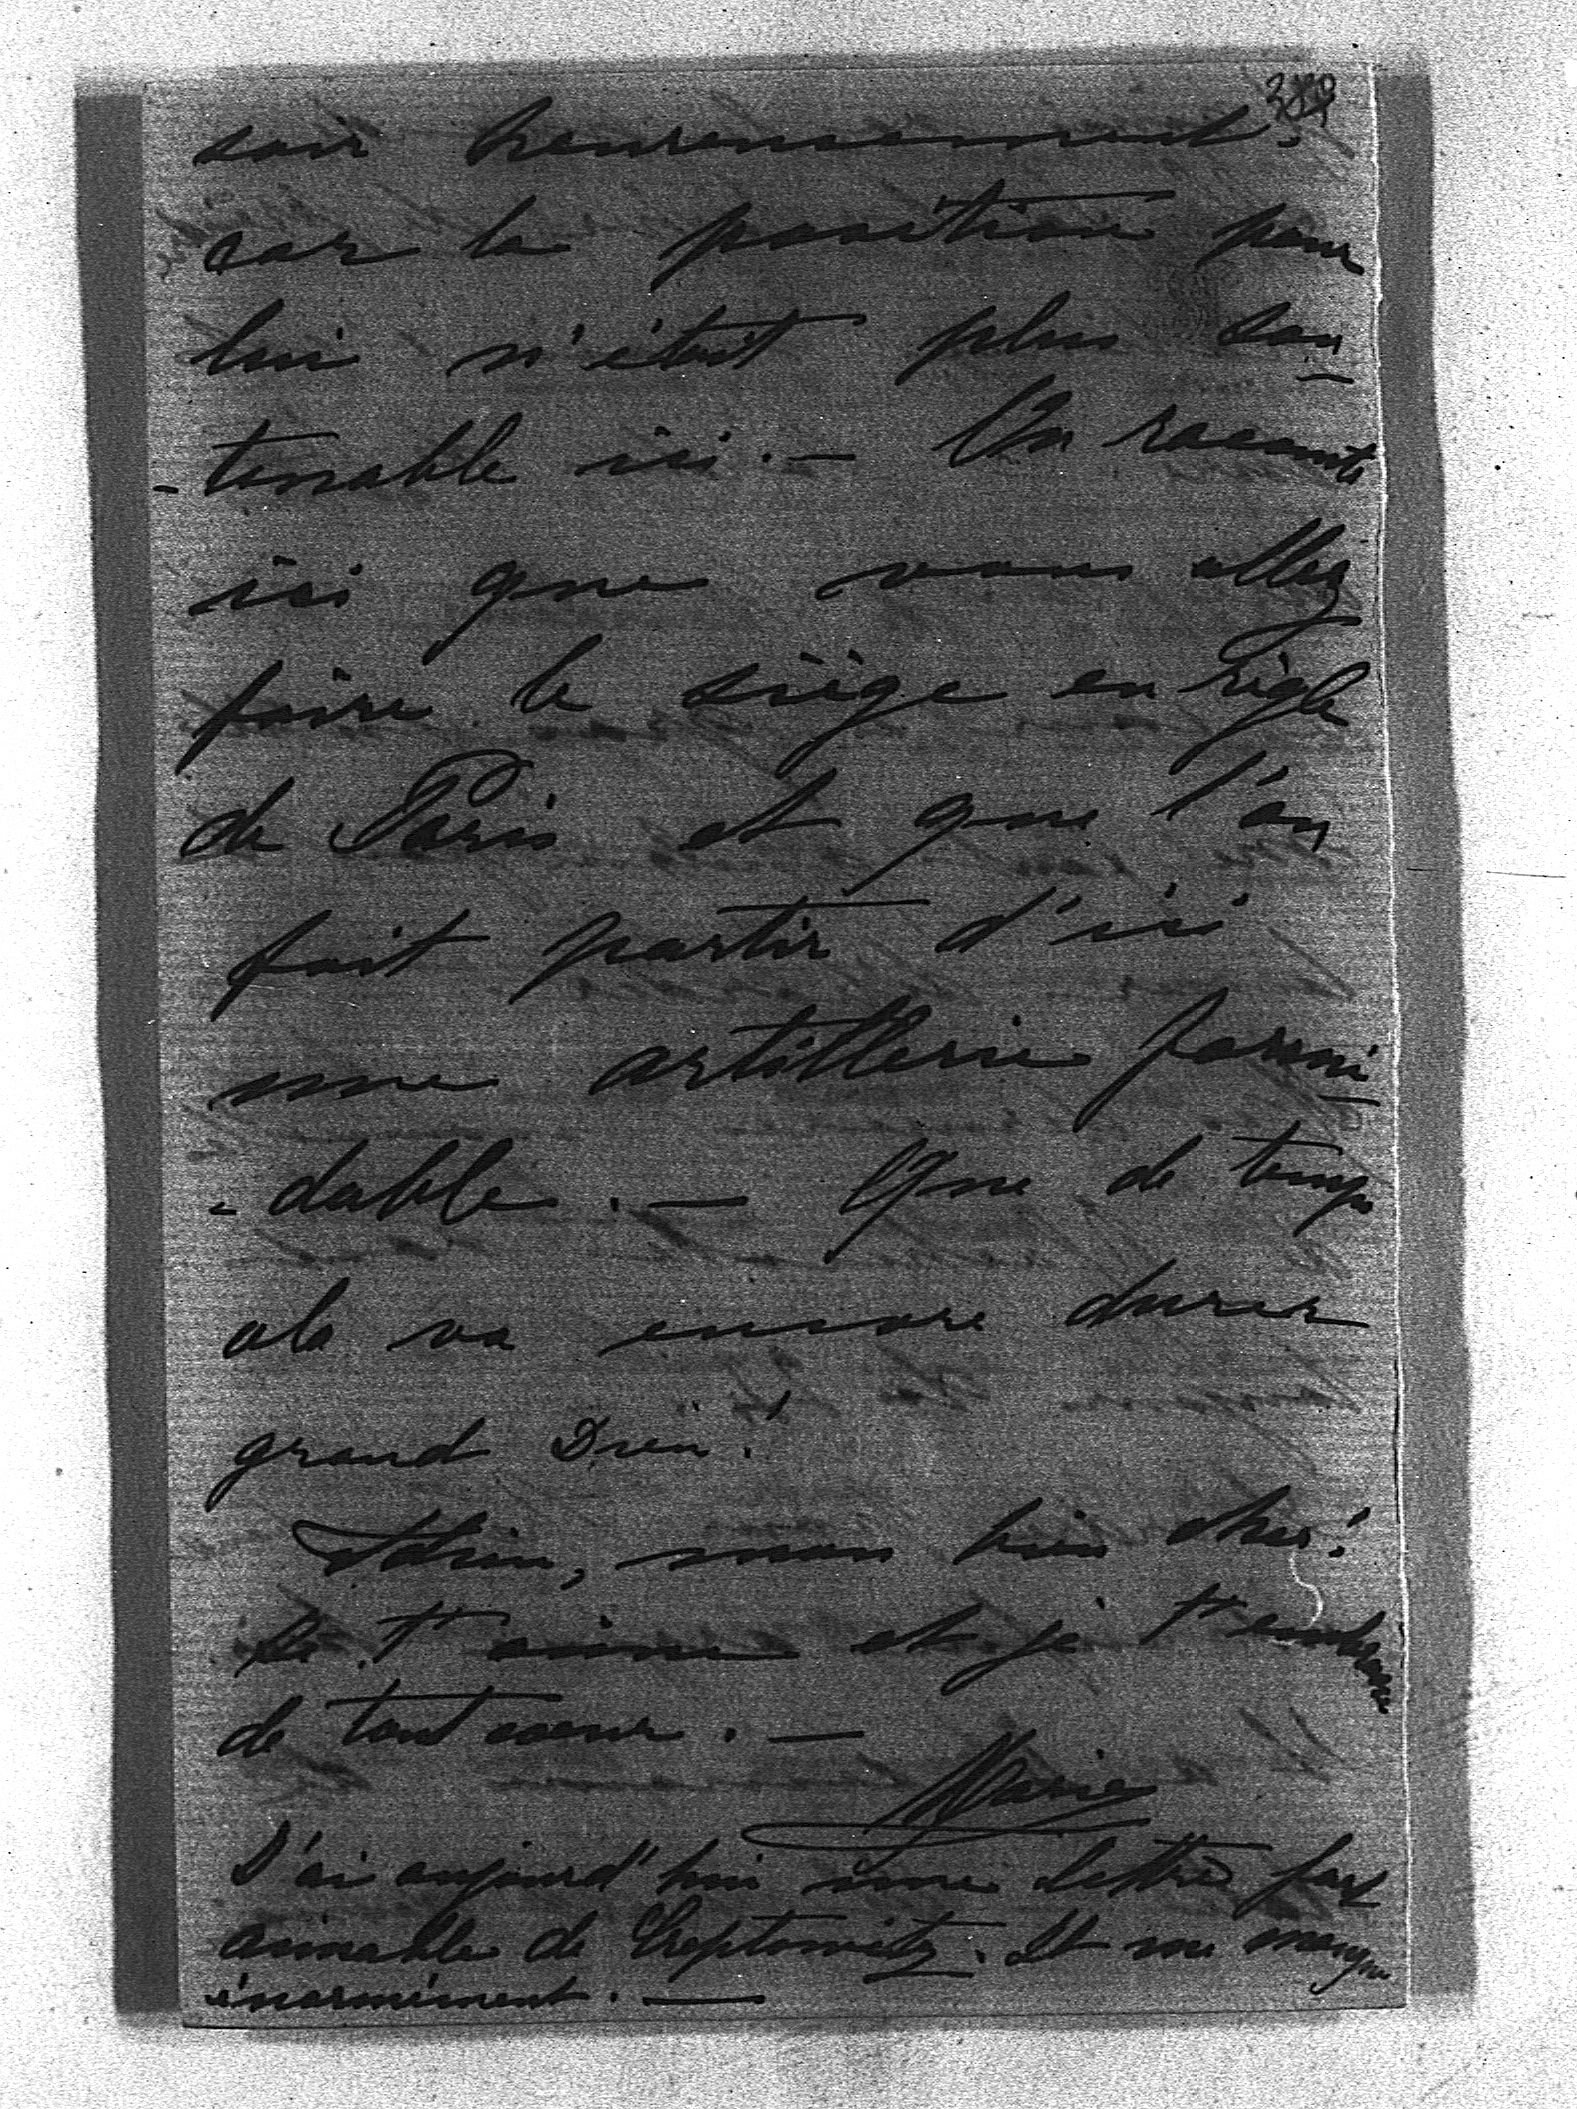 soir heureusement,
car la position pour
lui n'était plus sou-
-tenable ici. — On raconte
ici que vous allez
faire le siège en règle
de Paris et que l'on
fait partir d'ici
une artillerie formi-
-dable. — Que de temps
cela va encore durer
grand Dieu!
Adieu, mon bien cher!
Je t'aime et je t'embrasse
de tout coeur. —
Marie
J'ai aujourd'hui une lettre fort
aimable de Creptowitz. Il me manque
énormément. —